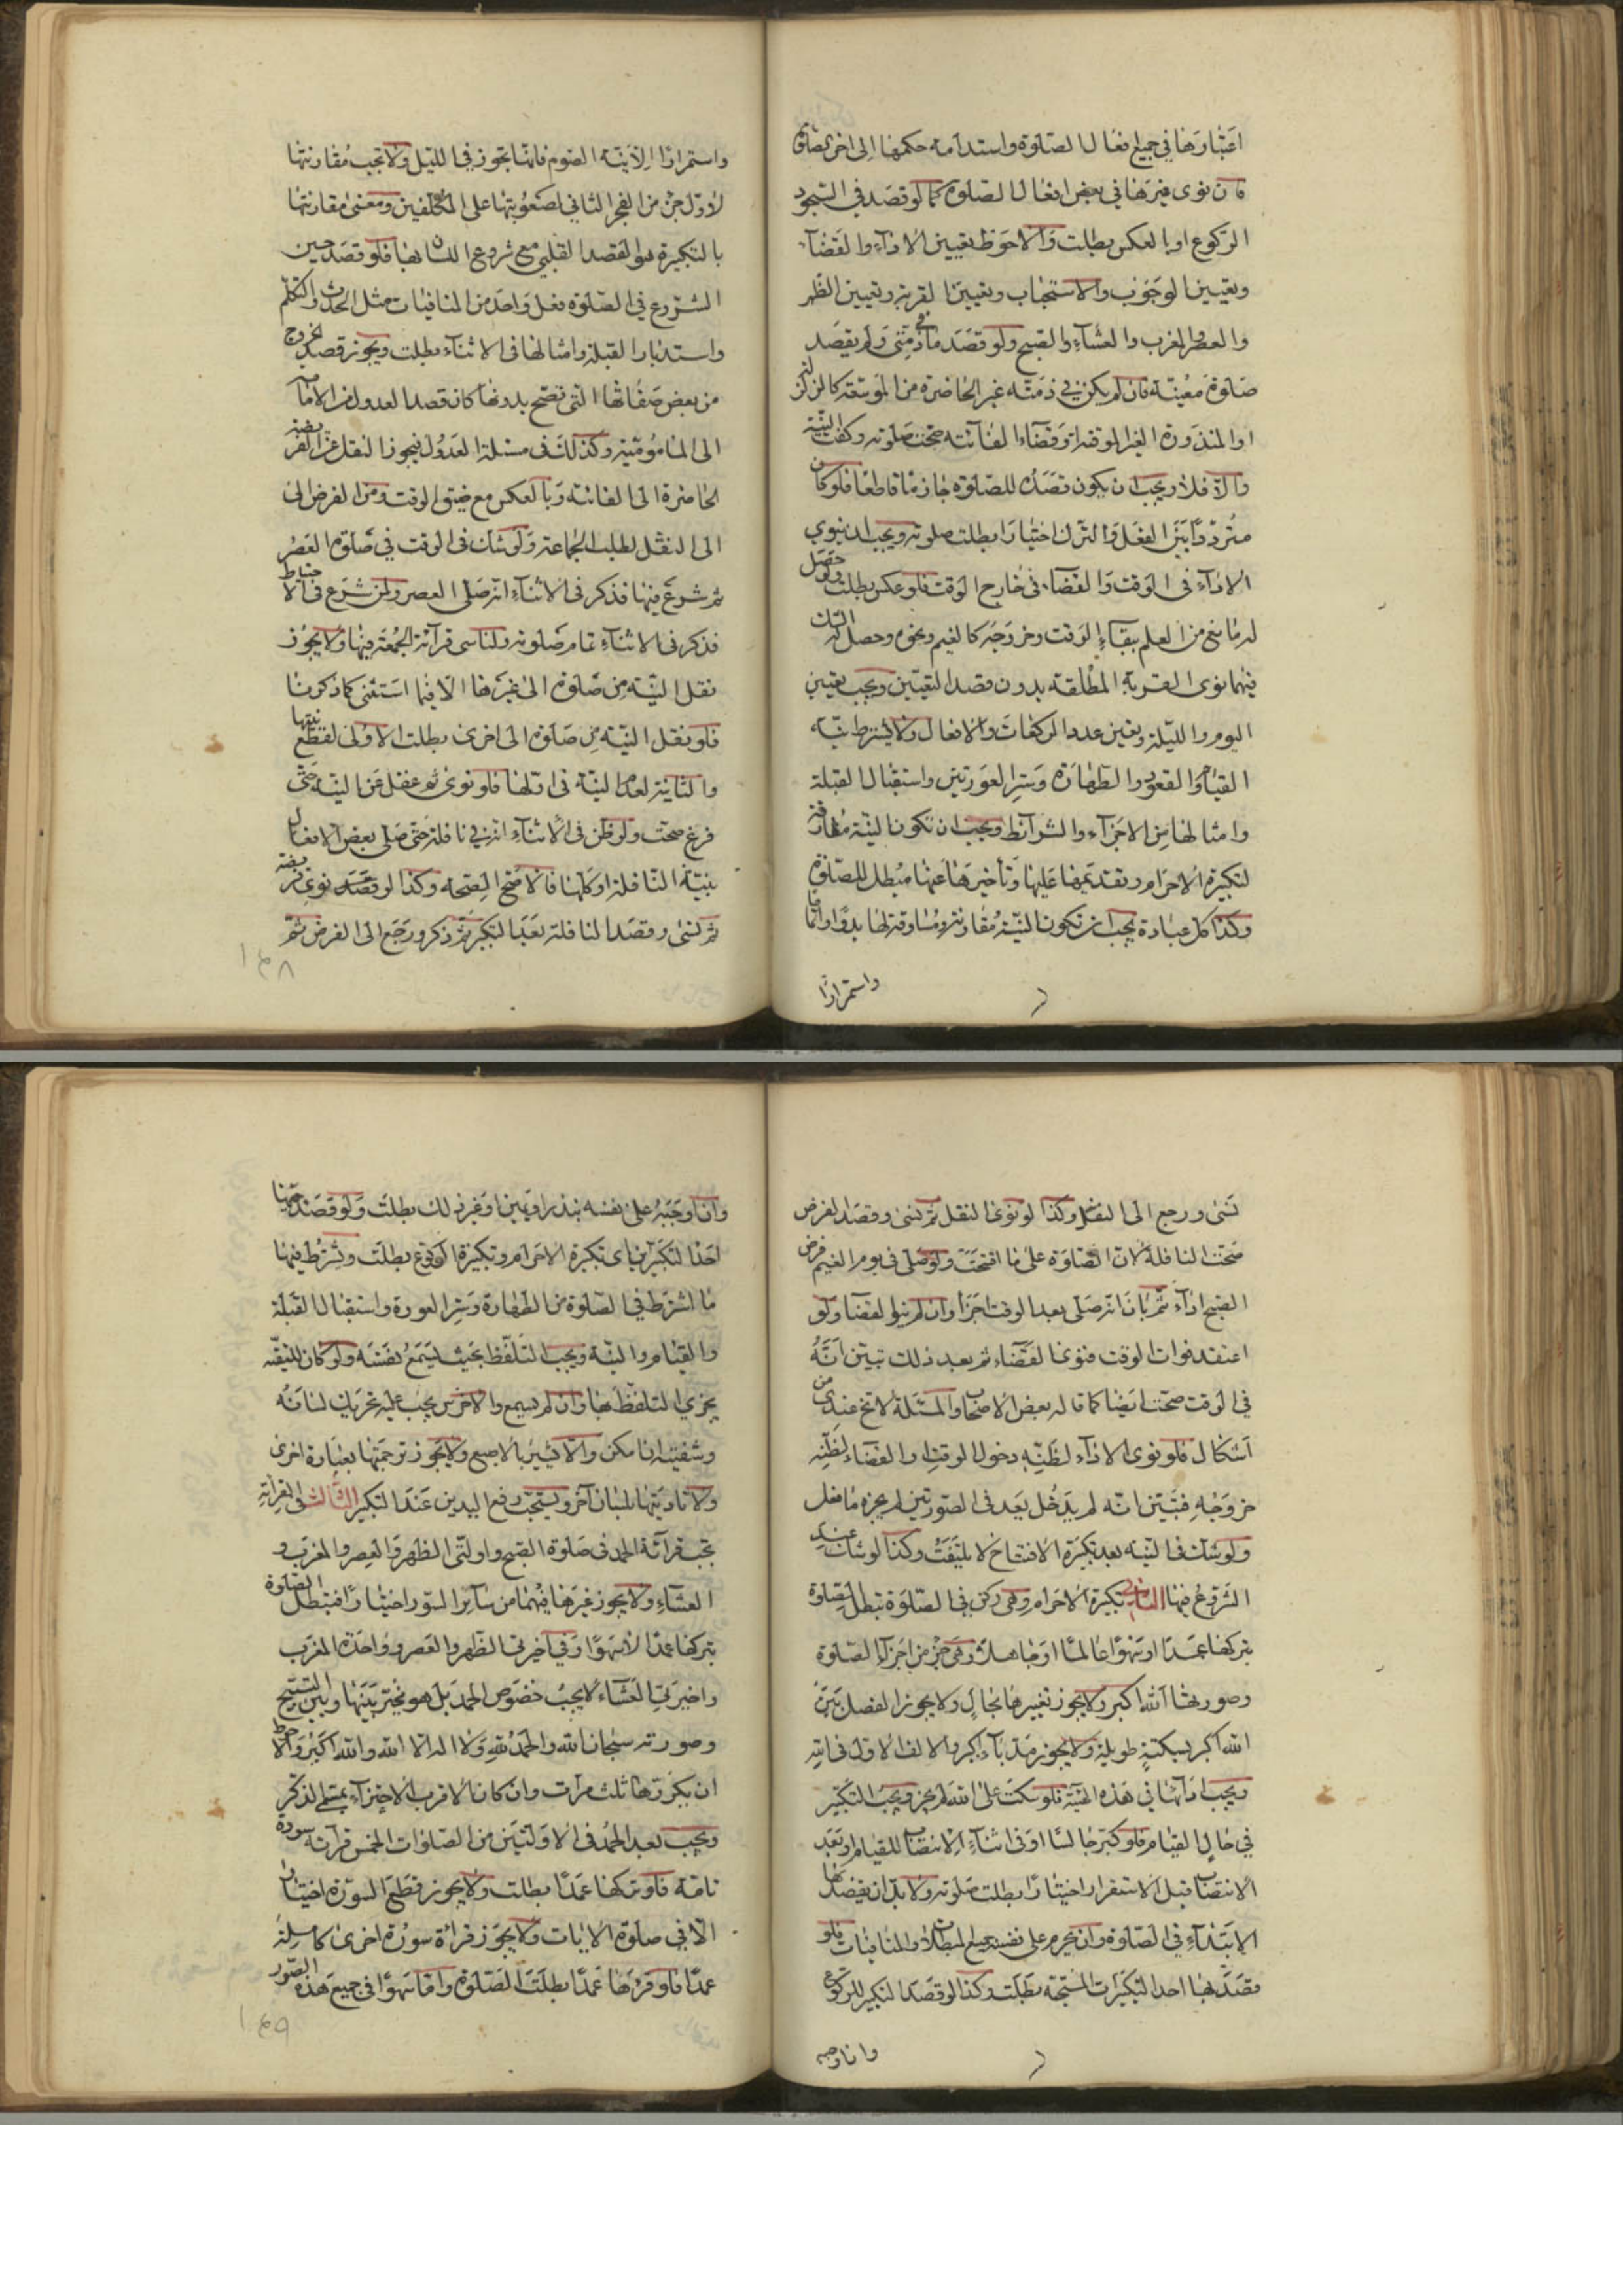 اعتبارها في جميع افعال الصلوة واستدامة حكمها الى اخر الصلوة
فان نوى غيرها في بعض افعال الصلوة كما لو قصد في السجود
الركوع او بالعكس بطلت والاحوط تعيين الاداء والقضاء
وتعيين الوجوب والاستحباب وتعيين القربة وتعيين الظهر
والعصر والمغرب والعشاء والصبح ولو قصد ما في ذمته ولم يقصد
صلوة معينة فان لم يكن في ذمته غير الحاضرة من الموسعة كالزلزلة
او المنذورة الغير الموقتة وقضاء الفائتة صحت صلوته وكفت النية
والا فلا ويجب ان يكون قصده للصلوة جازما قاطعا فلو كان
مترددا بين الفعل والترك اختيارا بطلت صلوته ويجب ان ينوي
الاداء في الوقت والقضاء في خارج الوقت فلو عكس بطلت ولو حصل
له مانع من العلم ببقاء الوقت وخروجه كالغيم ونحوه وحصل له الشك
فيهما نوى القربة المطلقة بدون قصد التعيين ويجب تعيين
اليوم والليلة وتعيين عدد الركعات والافعال ولا يشترط نية
القيام والقعود والطهارة وستر العورتين واستقبال القبلة
وامثالها من الاجزاء والشرائط ويجب ان تكون النية مقارنة
لتكبيرة الاحرام وتقديمها عليها وتأخيرها عنها مبطل للصلوة
وكذا كل عبادة يجب ان تكون النية مقارنة ومساوقة لها بدوا واما
واستمرارا
واستمرارا الا نية الصوم فانها يجوز في الليل ولا تجب مقارنتها
لاول جزء من الفجر الثاني لصعوبتها على المكلفين ومعنى مقارنتها
بالتكبيرة هو القصد القلبي مع شروع اللسان بها فلو قصد حين
الشروع في الصلوة فعل واحد من المنافيات مثل الحدث والتكلم
واستدبار القبلة وامثالها في الاثناء بطلت ويجوز قصد الخروج
من بعض صفاتها التي تصح بدونها كان قصد العدول من الامامة
الى المامومية وكذلك في مسئلة العدول فيجوز النقل عن الفريضة
الحاضرة الى الفائتة وبالعكس مع ضيق الوقت ومن الفرض الى
الى النفل لطلب الجماعة ولو شك في الوقت في صلوة العصر
ثم شرع فيها فذكر في الاثناء انه صلى العصر ولمن شرع في الاحتياط
فذكر في الاثناء تمام صلوته ولناسي قرآئة الجمعة فيها ولا يجوز
نقل النية من صلوة الى غيرها الا فيما استثنى كما ذكرنا
فلو نقل النية من صلوة الى اخرى بطلت الاولى لقطع نيتها
والثانية لعدم النية في اولها فلو نوى ثم غفل عن النية حتى
فرغ صحت ولو ظن في الاثناء انه في نافلة حتى صلى بعض الافعال
بنية النافلة او كلها فالاصح الصحة وكذا لو قصد نوى فريضة
ثم نسى وقصد النافلة بعد التكبير ثم ذكر ورجع الى الفرض ثم
١٤٨
نسى ورجع الى النفل وكذا لو نوى النفل ثم نسى وقصد الفرض
صحت النافلة لان الصلوة على ما افتتحت ولو صلى في يوم الغيم فرض
الصبح اداء ثم بان انه صلى بعد الوقت اجزأ وان لم ينو القضا ولو
اعتقد فوات الوقت فنوى القضاء ثم بعد ذلك تبين انه
في الوقت صحت ايضا كما قاله بعض الاصحاب والمسئلة لا تخ عندي من
اشكال فلو نوى الاداء لظنه دخول الوقت او القضاء لظنه
خروجه فتبين انه لم يدخل بعد في الصورتين لم يجزه ما فعل
ولو شك في النية بعد تكبيرة الافتتاح لا يلتفت وكذا لو شك عند
الشروع فيها الثاني تكبيرة الاحرام وهي ركن في الصلوة تبطل الصلوة
بتركها عمدا او سهوا عالما او جاهلا وهي جزء من اجزآء الصلوة
وصورتها الله اكبر ولا يجوز تغييرها بحال ولا يجوز الفصل بين
الله اكبر بسكتة طويلة ولا يجوز مد باء اكبر والالف الاول في الله
ويجب ادآئها في هذه الهيئة فلو سكت على الله لم يجز ويجب التكبير
في حال القيام فلو كبر جالسا او في اثناء الانتصاب للقيام او بعد
الانتصاب قبل الاستقرار اختيارا بطلت صلوته ولا بد ان يقصد بها
الابتداء في الصلوة وان يحرم على نفسه جميع المبطلات والمنافيات فلو
قصد بها احد التكبيرات المستحبة بطلت وكذا لو قصد التكبير للركوع
وان اوجبه
وان اوجبه على نفسه بنذر او يمين او غير ذلك بطلت ولو قصد بها
احد التكبيرين اي تكبيرة الاحرام وتكبيرة الركوع بطلت ويشترط فيها
ما اشترط في الصلوة من الطهارة وستر العورة واستقبال القبلة
والقيام والنية ويجب التلفظ بحيث يسمع نفسه ولو كان للتقية
يجزي التلفظ بها وان لم يسمع والاخرس يجب عليه تحريك لسانه
وشفتيه ان امكن والا فيشير بالاصبع ولا يجوز ترجمتها بعبارة اخرى
ولا تاديتها بلسان آخر ويستحب رفع اليدين عند التكبير الثالث في القرائة
تجب قرآئة الحمد في صلوة الصبح واولتي الظهر والعصر والمغرب و
العشاء ولا يجوز غيرها فيهما من سآئر السور اختيارا فتبطل الصلوة
بتركها عمدا لا سهوا وفي اخيرتي الظهر والعصر وواحدة المغرب
واخيرتي العشاء لا يجب خصوص الحمد بل هو مخير بينها وبين التسبيح
وصورته سبحان الله والحمد لله ولا اله الا الله والله اكبر والاحوط
ان يكررها ثلث مرآت وان كان الاقرب الاجتزآء بمسمى الذكر
ويجب بعد الحمد في الاولتين من الصلوات الخمس قرآئة سورة
تامة فلو تركها عمدا بطلت ولا يجوز قطع السورة اختيارا
الا في صلوة الايات ولا يجوز قرائة سورة اخرى كاملة
عمدا فلو قرئها عمدا بطلت الصلوة واما سهوا في جميع هذه الصور
١٤٩